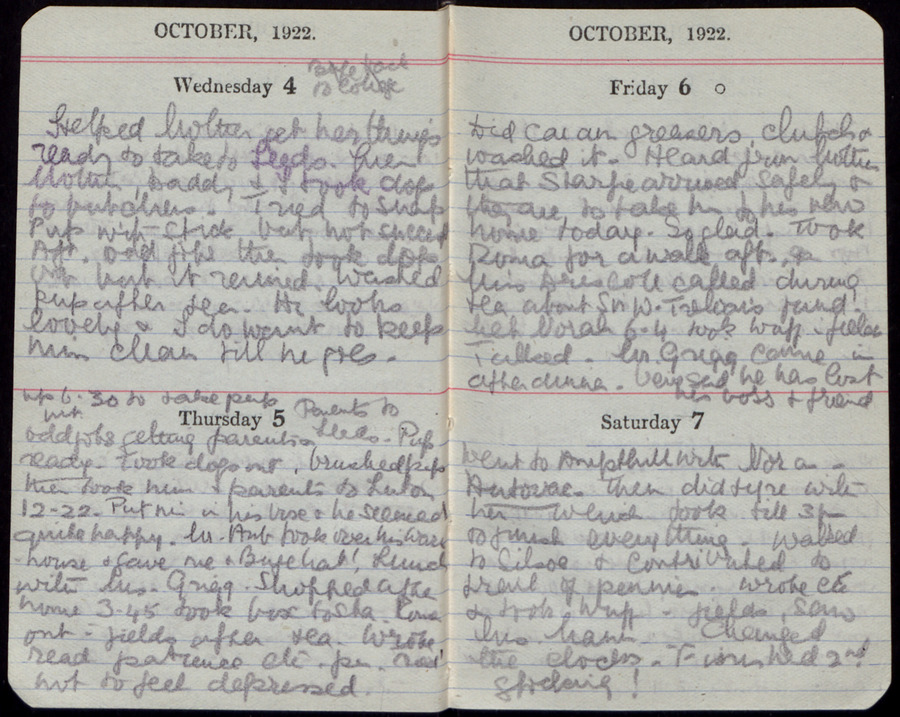 OCTOBER, 1922.
Wednesday 4
to College
Helped Mother get her things
ready to take to Leeds. Then
Mother, Daddy & I took dogs
to butchers. Tried to snap
Pup with stick but not succeed
Aft. odd jobs then took dogs
out but it rained. Washed
pup after tea. He looks
lovely & I do want to keep
him clean till he goes.
Up 6.30 to take pup
out
Thursday 5 Parents to
Leeds. Pup
odd jobs getting parents
ready. Took dogs out, brushed pup
then took him & parents to Luton
12-22. Put him in his box & he seemed
quite happy. Mr. took over his
house & gave me a hat! Lunch
with Mrs. Grigg. Shopped after
home 3-45 took box to Sta. Roma
out - fields after tea. Wrote
read patience etc.
not to feel depressed.
OCTOBER, 1922.
Friday 6
Did car an greasers, clutch &
washed it. Heard from Mother
that arrived safely &
they are to take him to his new
home today. So glad. Took
Roma for a walk aft. &
Miss Driscoll called during
tea about Sir W. fund.
Met Norah 6-4 took - fields
Talked. Mr. Grigg came in
after dinner. Very sad he has lost
his boss & friend
Saturday 7
Went to Ampthill with Nora -
Then did tyre with
her took till 3 pm
to finish everything. Walked
to Silsoe & contributed to
trail of pennies. Wrote etc
& took - fields. Saw
Mrs Mann. Changed
the clocks. Finished 2nd
stocking!